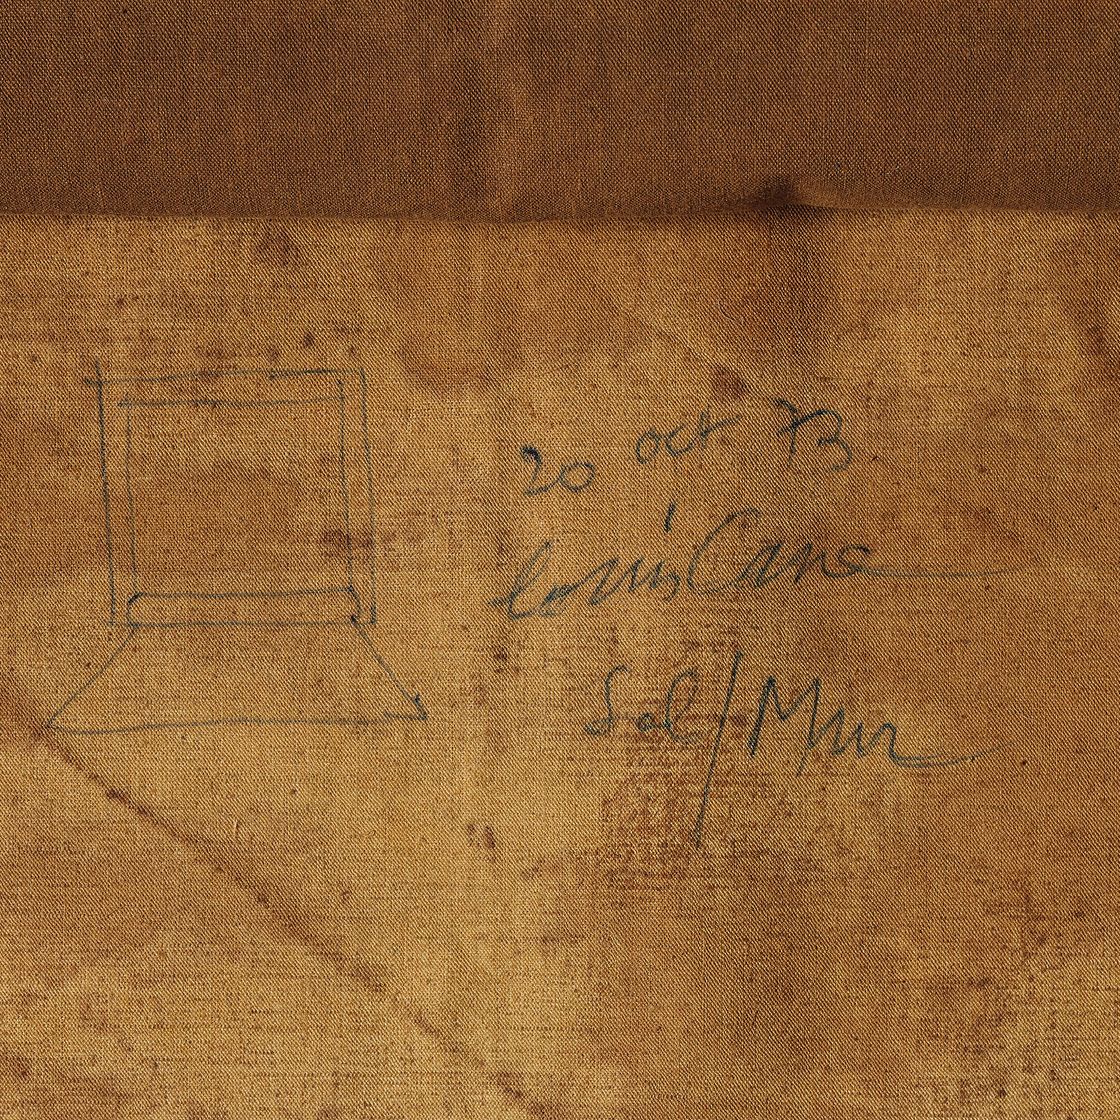 20 oct 73
louis Cane
Sol/Mur